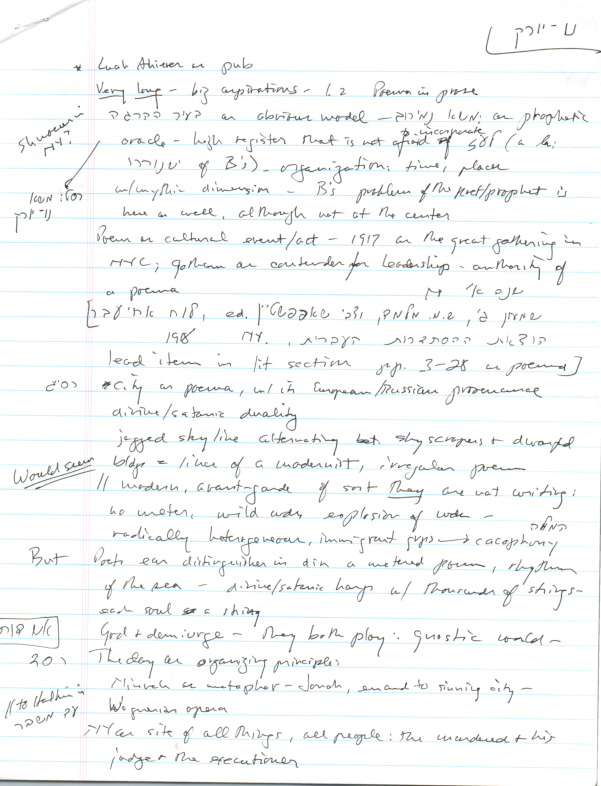 ניו-יורק
* Luah Ahiever as pub
Very long – big aspirations – 1.2 Poema in prose
בעיר ההרגה as obvious model – משא נמירוב: as prophetic
oracle – high register that is not afraid to incorporate לעז (a la:
of B's) – organization: time, place
w/mythic dimension – B's problem of the poet/prophet is
here as well, although not at the center
משא
ניו יורק
Poem as cultural event/act – 1917 as the great gathering in
NYC; gotham as contender for leadership – authority of
a poema
[שמעון ג', ש.מ. מלמד, וצבי שארפשטיין, ed. לוח אחיעבר
הוצאת ההסתדרות העברית, NY. 1918
lead item in lit section pp. 3-28 as poema]
* City as poema, w/in European/Russian provenance
divine/satanic duality
jagged skyline alternating bet. skyscrapers + dwarfed
Would seem
bldgs = lines of a modernist, irregular poem
// modern, avant-garde of sort they are not writing:
no meter, wild order, explosion of
radically heterogeneous, immigrant grps → cacophony המולה
But
Poets ear distinguishes in din a metered poem, rhythm
of the sea – divine/satanic harp w/ thousands of strings –
each soul as a string
God + demiurge – they both play: gnostic world –
The day as organizing principle:
Minhah as metaphor – Jonah, errand to sinning city –
Wagnerian opera
// to Halkin's
עד משבר
NY as site of all things, all people: the murdered + his
judge + the executioner